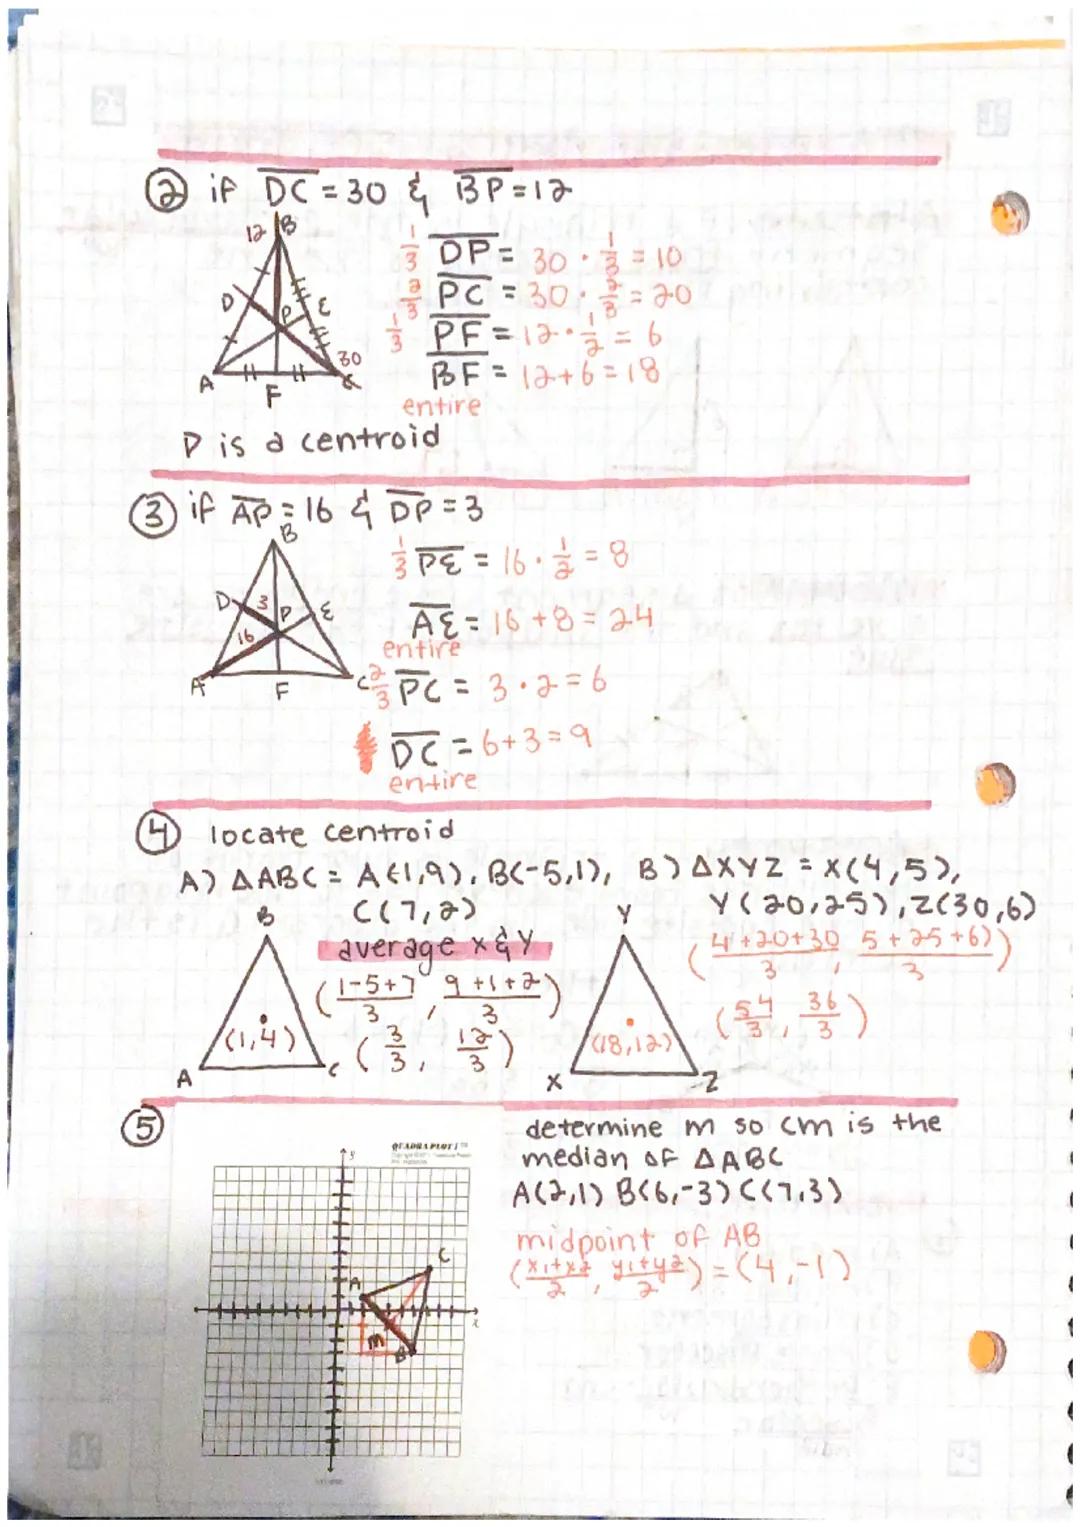 ② if DC = 30 & BP = 12
12 B
D P E
30
A F C
1/3 DP = 30 · 1/3 = 10
2/3 PC = 30 · 2/3 = 20
1/3 PF = 12 · 1/2 = 6
BF = 12 + 6 = 18
entire
P is a centroid
③ if AP = 16 & DP = 3
B
D 3 P E
16
A F C
1/3 PE = 16 · 1/2 = 8
AE = 16 + 8 = 24
entire
2/3 PC = 3 · 2 = 6
DC = 6 + 3 = 9
entire
④ locate centroid
A) △ABC = A(1,9), B(-5,1),
C(7,2)
average x & y
(1-5+7/3, 9+1+2/3)
(3/3, 12/3)
B
(1,4)
A C
B) △XYZ = X(4,5),
Y(20,25), Z(30,6)
(4+20+30/3, 5+25+6/3)
(54/3, 36/3)
Y
(18,12)
X Z
⑤
QUADRA PLOT
y
C
A
x
m
B
determine m so cm is the
median of △ABC
A(2,1) B(6,-3) C(7,3)
midpoint of AB
(x1+x2/2, y1+y2/2) = (4,-1)